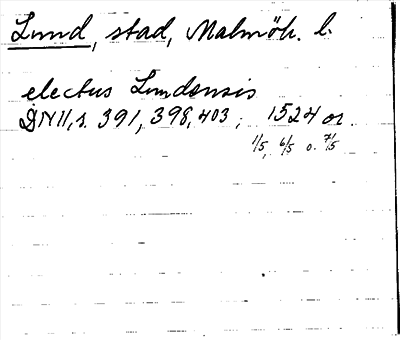 Lund, stad, Malmöh. l.
electus Lundensis
DN II, s. 391, 398, 403; 1524 or.
1/5, 6/5 o. 7/5